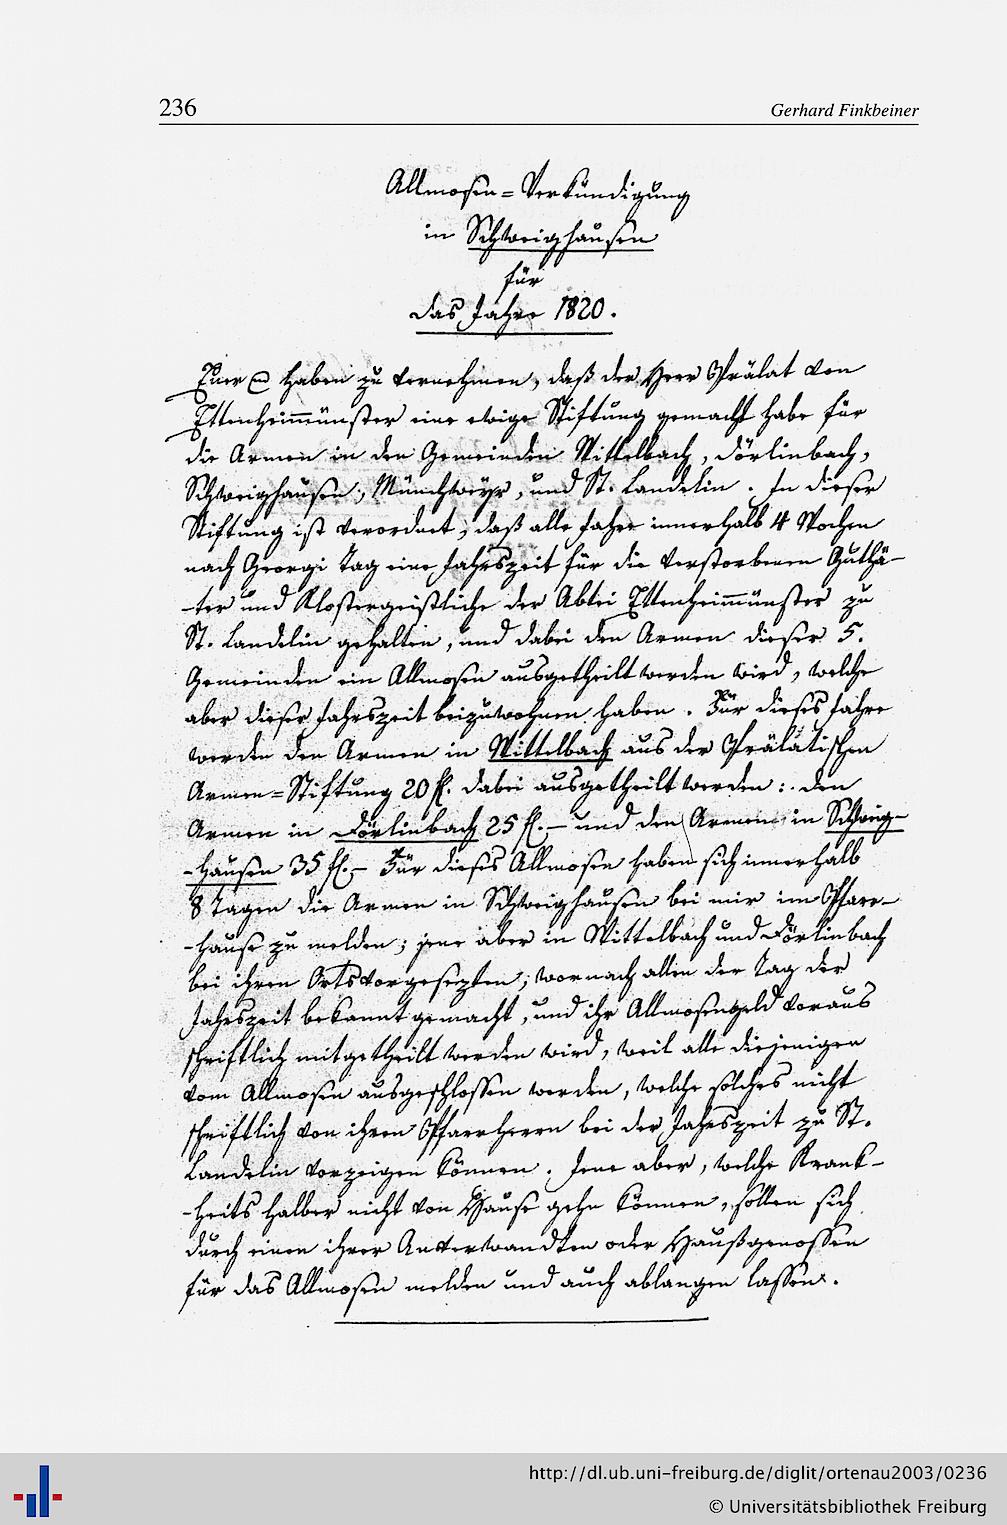 236
Gerhard Finkbeiner
Allmosen=Verkündigung
in Schweighausen
für
das Jahre 1820.
Euer haben zu vernehmen, daß der Herr Prälat von
Ettenheimmünster eine ewige Stiftung gemacht habe für
die Armen in den Gemeinden Wittelbach, Dörlinbach,
Schweighausen, Münchweyer, und St. Landelin. In dieser
Stiftung ist verordnet, daß alle Jahre innerhalb 4 Wochen
nach Georgi Tag eine Jahrszeit für die verstorbenen Guthä-
-ter und Klostergeistliche der Abtei Ettenheimmünster zu
St. Landelin gehalten, und dabei den Armen dieser 5.
Gemeinden ein Allmosen ausgetheilt werden wird, welche
aber dieser Jahrszeit beizuwohnen haben. Für dieses Jahre
werden den Armen in Wittelbach aus der Prälatischen
Armen=Stiftung 20 fl. dabei ausgetheilt werden: den
Armen in Dörlinbach 25 fl.– und den Armen in Schweig-
-hausen 35 fl.– Für dieses Allmosen haben sich innerhalb
8 Tagen die Armen in Schweighausen bei mir im Pfarr-
-hause zu melden; jene aber in Wittelbach und Dörlinbach
bei ihren Ortsvorgesezten; wornach allen der Tag der
Jahrszeit bekannt gemacht, und ihr Allmosengeld voraus
schriftlich mitgetheilt werden wird, weil alle diejenigen
vom Allmosen ausgeschlossen werden, welche solches nicht
schriftlich von ihrem Pfarrherrn bei der Jahrszeit zu St.
Landelin vorzeigen können. Jene aber, welche Krank-
-heits halber nicht von Hause gehn können, sollen sich
durch einen ihrer Anverwandten oder Haußgenossen
für das Allmosen melden und auch ablangen lassen.
http://dl.ub.uni-freiburg.de/diglit/ortenau2003/0236
© Universitätsbibliothek Freiburg